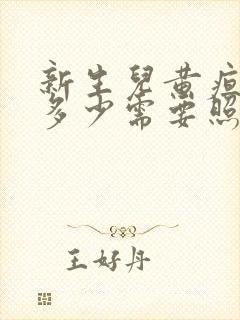 新生儿黄疸
多少需要照
王好丹